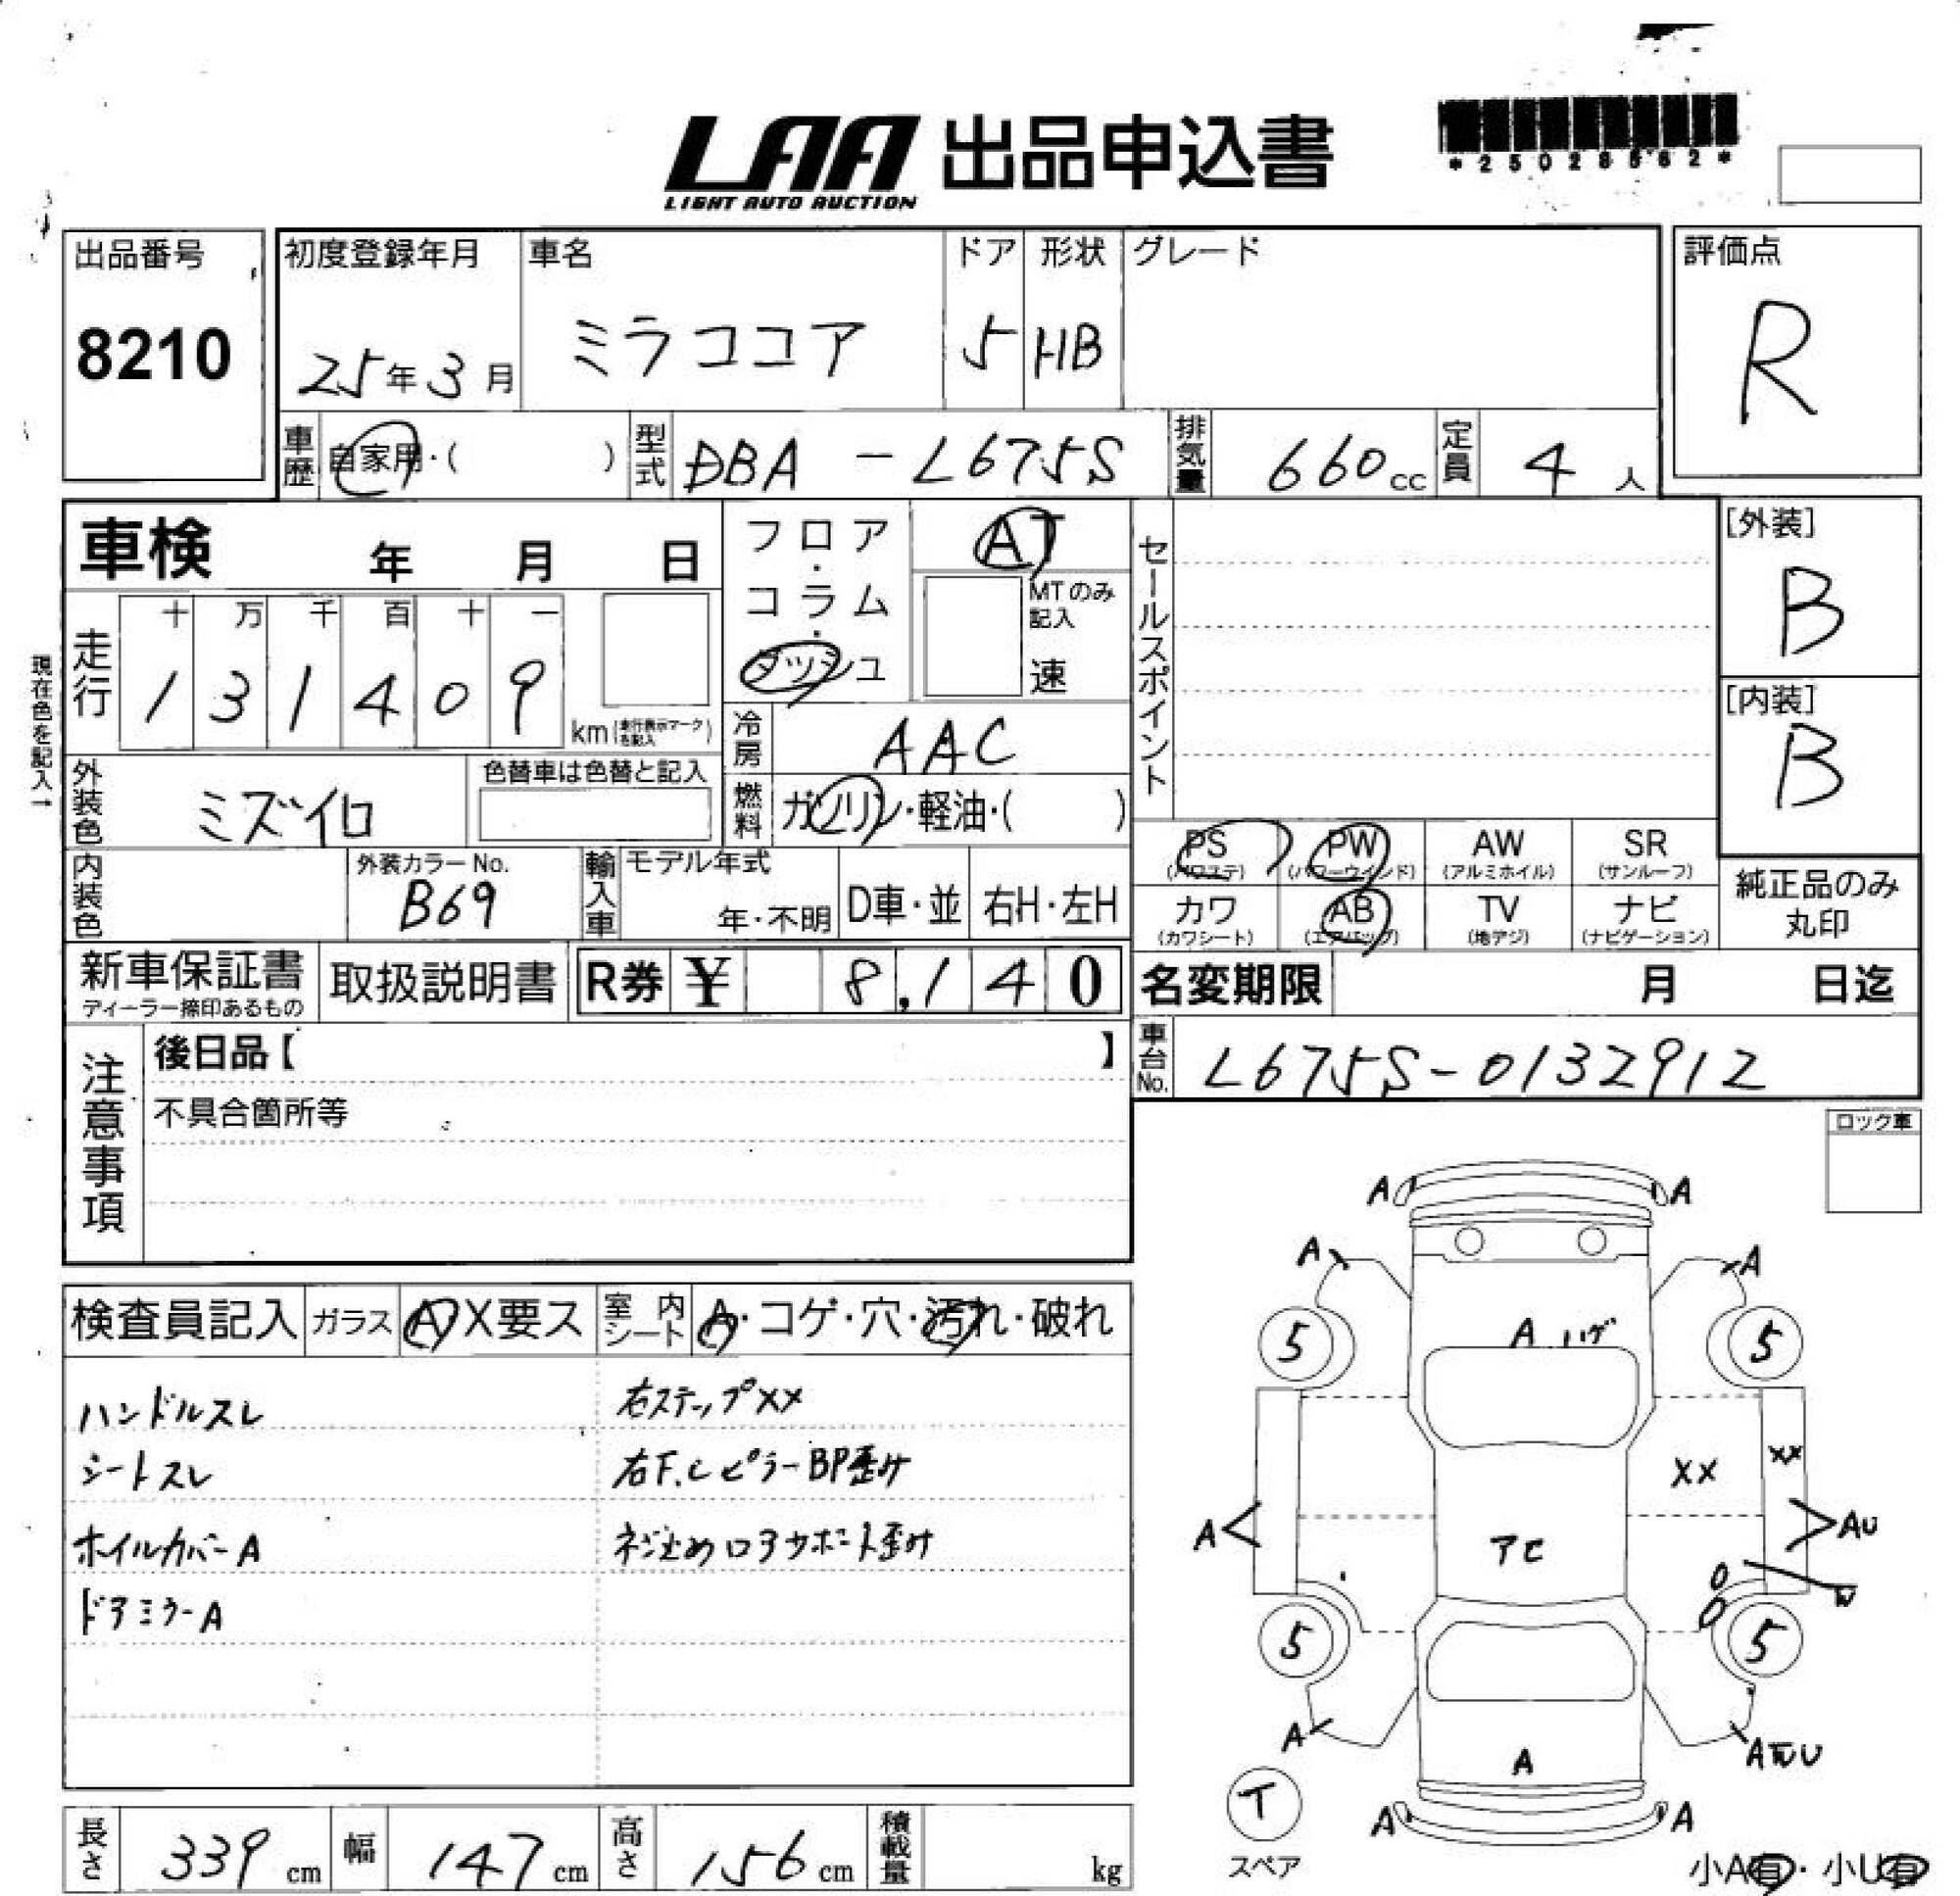 LAA 出品申込書
LIGHT AUTO AUCTION
*25028562*
出品番号
8210
初度登録年月
25年3月
車名
ミラココア
ドア
5
形状
HB
グレード
評価点
R
車歴
自家用・( )
型式
DBA-L675S
排気量
660cc
定員
4人
車検 年 月 日
フロア・コラム・ダッシュ
AT
MTのみ記入
速
セールスポイント
[外装]
B
[内装]
B
現在色を記入→
走行
十 万 千 百 十 一
1 3 1 4 0 9
km(走行表示マークを記入)
冷房
AAC
燃料
ガソリン・軽油・( )
外装色
ミズイロ
色替車は色替と記入
内装色
外装カラーNo.
B69
輸入車
モデル年式
年・不明
D車・並
右H・左H
PS (パワステ)
PW (パワーウインド)
AW (アルミホイル)
SR (サンルーフ)
カワ (カワシート)
AB (エアバッグ)
TV (地デジ)
ナビ (ナビゲーション)
純正品のみ丸印
新車保証書
ディーラー捺印あるもの
取扱説明書
R券 ¥ 8,140
名変期限 月 日迄
車台No.
L675S-0132912
注意事項
後日品【 】
不具合箇所等
ロック車
検査員記入
ガラス
A X要ス
室内シート
A・コゲ・穴・汚れ・破れ
ハンドルスレ
シートスレ
ホイルカバーA
ドアミラーA
右ステップXX
右F.Cピラー BP歪み
ネジ止めロアサポート歪み
A A
A A
A ハゲ
5 5
XX XX
A AU
アセ
5 5
A
A
A A
T
スペア
小A有・小U有
長さ
339cm
幅
147cm
高さ
156cm
積載量
kg